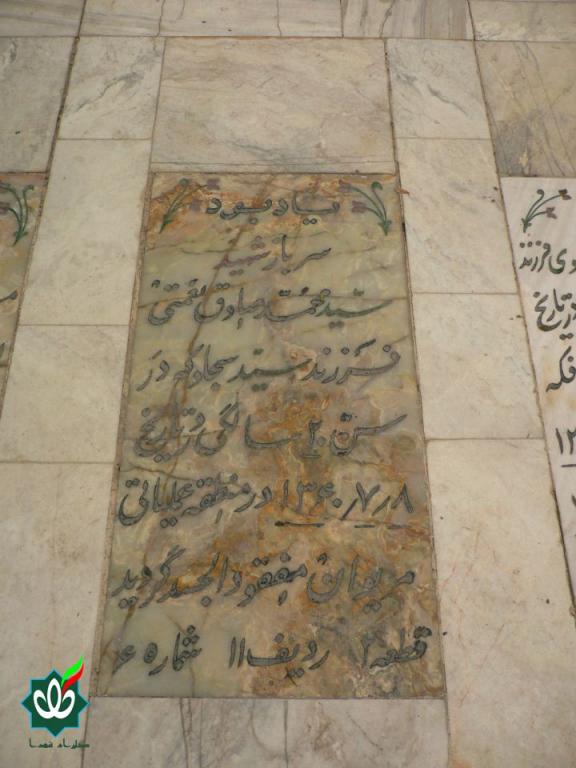 یادبود
سرباز شهید
سید محمد صادق نعمتی
فرزند سید سجاد که در
سن ۲۰ سالگی در تاریخ
۱۳۶۰٫۷٫۸ در منطقه عملیاتی
مریوان مفقودالجسد گردید
قطعه ۲ ردیف ۱۱ شماره ۶
وی فرزند
تاریخ
فکه
گلزار شهدا